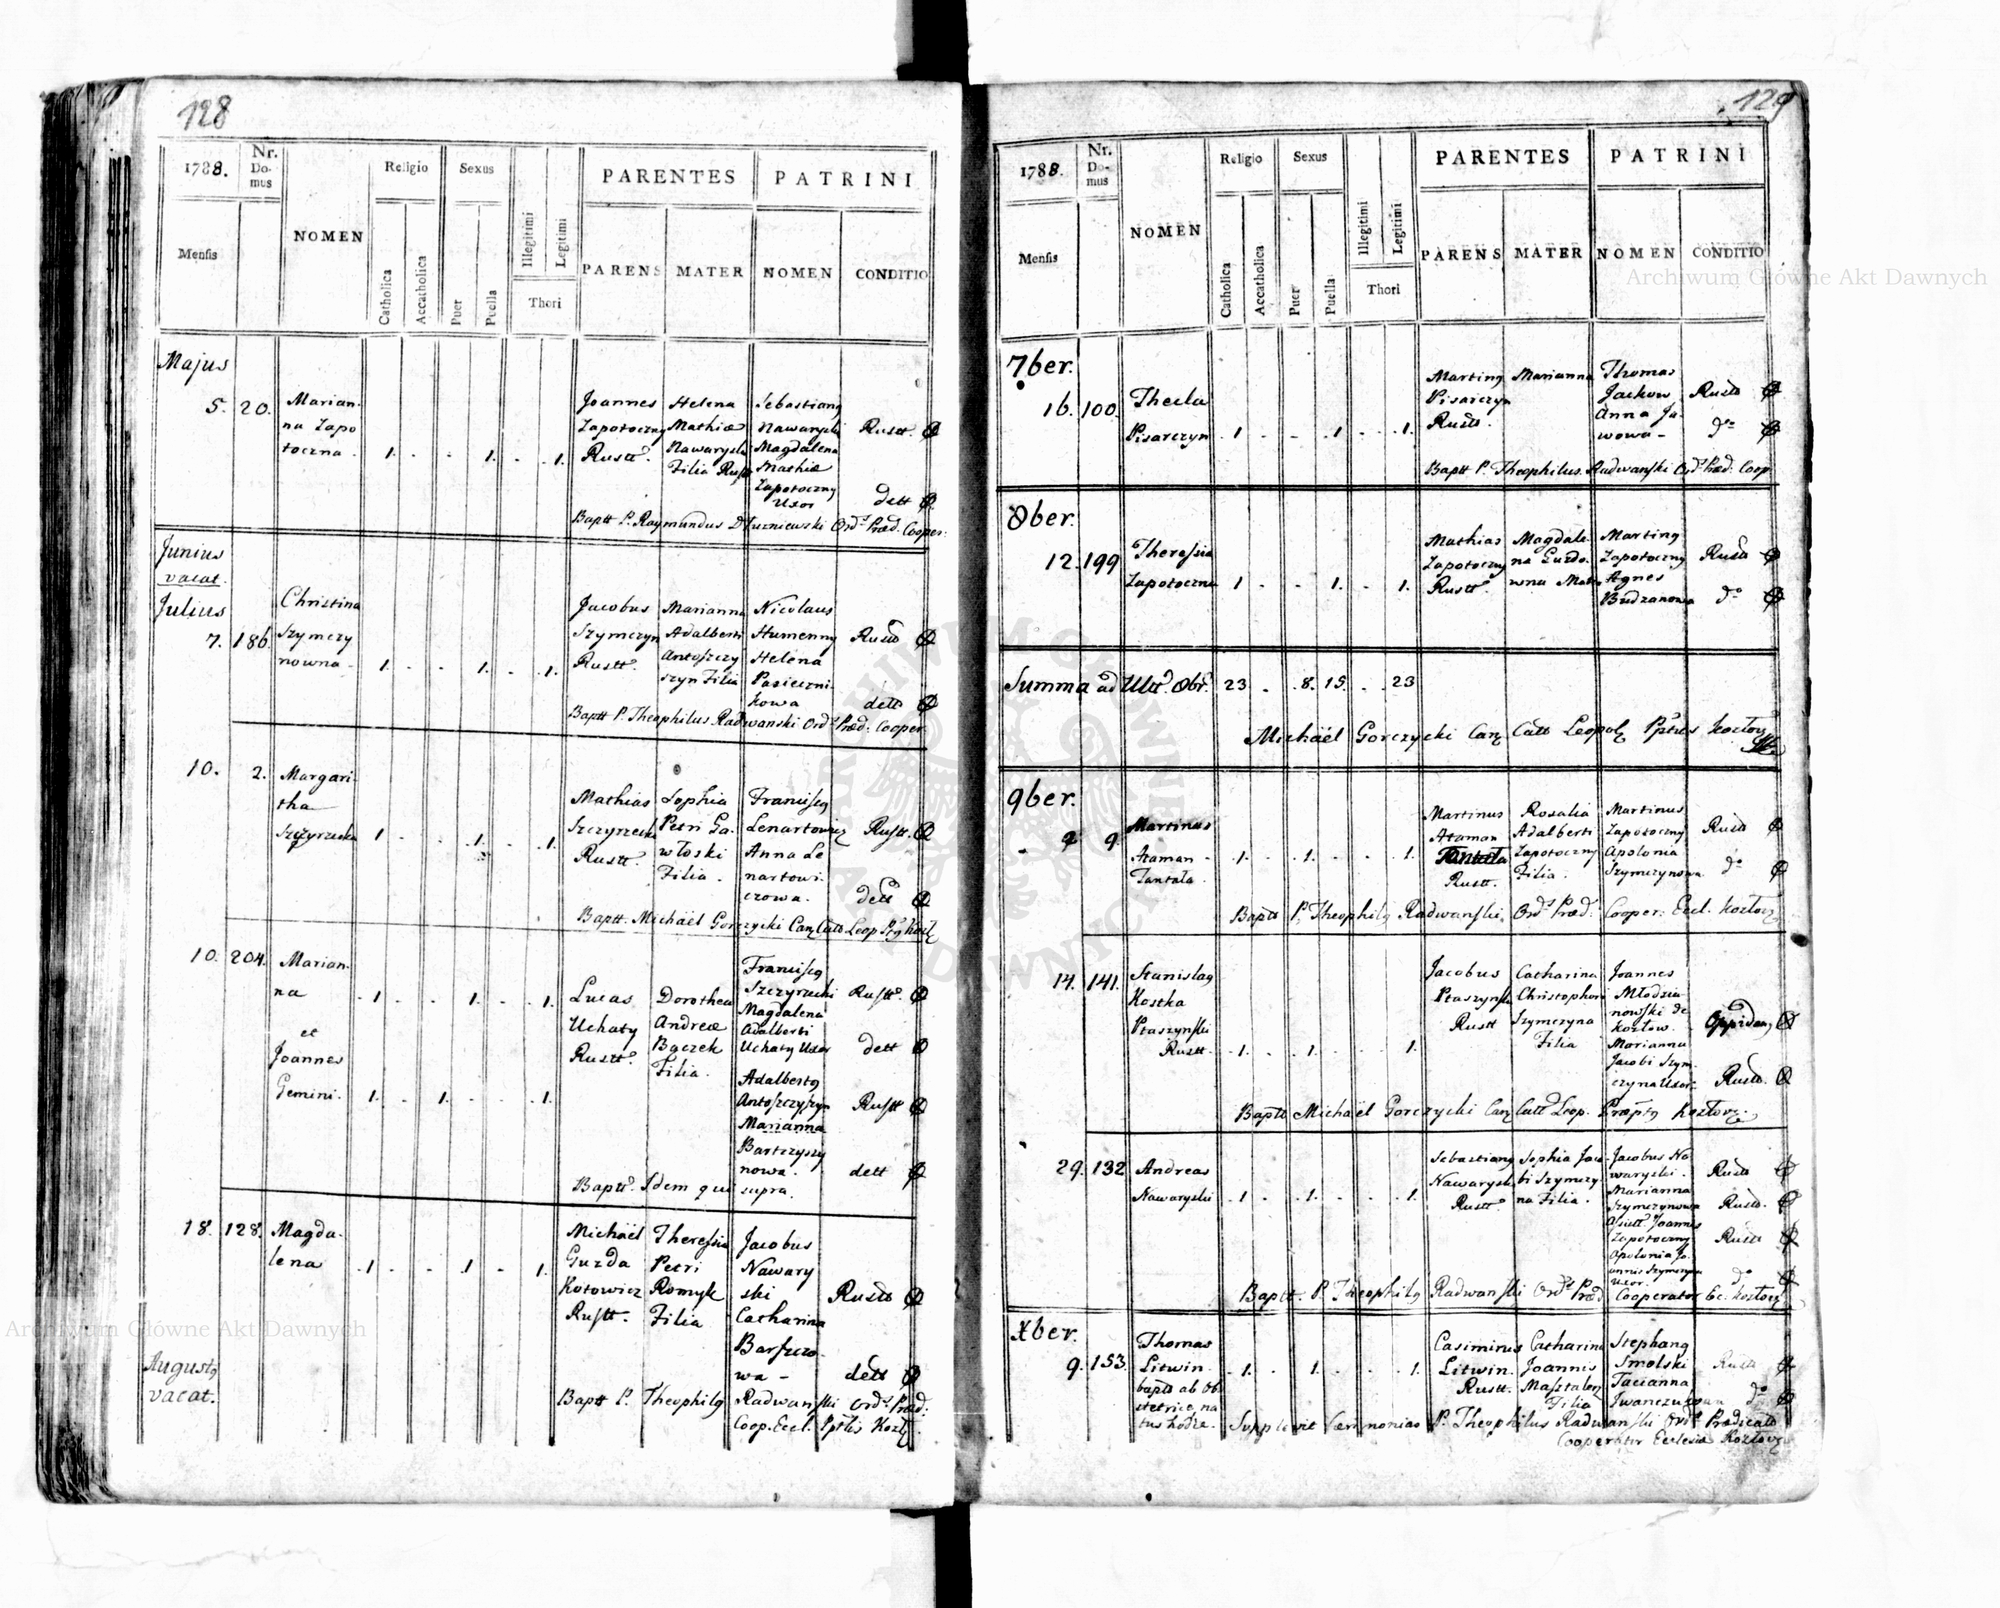 128
1788.
Nr. Domus
NOMEN
Religio
Sexus
PARENTES
PATRINI
Mensis
Catholica
Accatholica
Puer
Puella
Illegitimi
Legitimi
Thori
PARENS
MATER
NOMEN
CONDITIO
Majus
5. 20.
Marian-
na Zapo
toczna. 1. . . 1. . 1.
Joannes
Zapotoczny
Rustt.
Helena
Mathiæ
Nawaryski
Filia Rust
Sebastiang
Nawaryski
Magdalena
Mathiæ
Zapotoczny
Uxor
Rustt.
dett
Baptt P. Raymundus Dłużniewski Ord. Præd. Cooper.
Junius
vacat.
Julius
7. 186.
Christina
Szymczy
nowna. 1. . . 1. . 1.
Jacobus
Szymczyn
Rustt.
Marianna
Adalberti
Antoszczy
szyn Filia
Nicolaus
Humenny
Helena
Pasieczni-
kowa
Rustt
dett
Baptt P. Theophilus Radwanski Ord. Præd. Cooper
10. 2.
Margari-
tha
Szczyrzecka 1 . . 1. . 1.
Mathias
Szczyrzecki
Rustt.
Sophia
Petri Ga-
włoski
Filia.
Franciscg
Lenartowicz
Anna Le
nartowi-
czowa.
Rustt.
dett
Baptt. Michaël Gorczycki Can Catt Leop
10. 204.
Marian-
na . 1 . . 1. . 1.
et
Joannes
Gemini. 1. . 1. . . 1.
Lucas
Uchaty
Rustt.
Dorothea
Andreæ
Bączek
Filia.
Francisg
Szczyrzecki
Magdalena
Adalberti
Uchaty Uxor
Adalbertg
Antoszczyszyn
Marianna
Bartczyszy
nowa.
Rustt.
dett
Rustt
dett
Baptt. Idem qui supra.
18. 128.
Magda-
lena . 1 . . 1. . 1.
Michaël
Guzda
Kotowicz
Rustt.
Theressia
Petri
Romyk
Filia
Jacobus
Nawary
ski
Catharina
Barszczo-
wa -
Rustt
dett
Baptt P. Theophilg Radwanski Ord. Præd.
Coop. Eccl.
Augustg
vacat.
129
1788.
Nr. Domus
NOMEN
Religio
Sexus
PARENTES
PATRINI
Mensis
Catholica
Accatholica
Puer
Puella
Illegitimi
Legitimi
Thori
PARENS
MATER
NOMEN
CONDITIO
7ber.
16. 100.
Thecla
Pisarczyn . 1 . . - . 1. . . 1.
Marting
Pisarczyn
Rustt.
Marianna
Thomas
Jackow
Anna Ja-
wowa -
Rustt
do
Baptt P. Theophilus Radwanski Ord. Præd. Coop.
8ber.
12. 199
Theressia
Zapotoczna 1 . . . 1. . 1.
Mathias
Zapotoczny
Rustt.
Magdale-
na Guzdo-
wna
Marting
Zapotoczny
Agnes
Budzanowa
Rustt
do
Summa ad Ultt. 8br. 23 . . 8. 15. . . 23
Michaël Gorczycki Can Catt Leopol
9ber.
9
Martinus
Ataman -
Tantała . . 1. . 1. . . 1.
Martinus
Ataman
Rustt.
Rosalia
Adalberti
Zapotoczny
Filia.
Martinus
Zapotoczny
Apolonia
Szymczynowa.
Rustt
do
Baptt P. Theophilg Radwanski, Ord. Præd. Cooper: Eccl.
14. 141.
Stanislag
Kostka
Ptaszynski
Rustt. . 1. . 1. . . 1.
Jacobus
Ptaszynski
Rustt
Catharina
Christophori
Szymczyna
Filia
Joannes
Młodzia-
nowski de
Kozłow.
Marianna
Jacobi Szym-
czyna Uxor.
Oppidang
Rustt.
Baptt Michaël Gorczycki Can Catt Leop.
29. 132
Andreas
Nawaryski . 1 . . 1. . . 1.
Sebastiang
Nawaryski
Rustt.
Sophia Jaco-
bi Szymczy
na Filia.
Jacobus Na
waryski.
Marianna
Szymczynowa
Assistt Joannes
Zapotoczny
Apolonia Jo-
annis Szymczyna
Uxor.
Rustt
Rustt.
Rustt
do
Baptt. P. Theophilg Radwanski Ord. Præd Cooperator
Xber.
9. 153.
Thomas
Litwin. . 1. . 1. . . 1.
baptt ab Ob
stetrice na
tus hodie.
Casimirus
Litwin.
Rustt.
Catharina
Joannis
Filia
Stephang
Smolski
Tacianna
Rustt
do
Supplevit Cærimonias P. Theophilus Radwanski Ord. Prædicato
Cooperator Ecclesiæ
Archiwum Główne Akt Dawnych
Archiwum Główne Akt Dawnych
ARCHIWUM GŁÓWNE AKT DAWNYCH